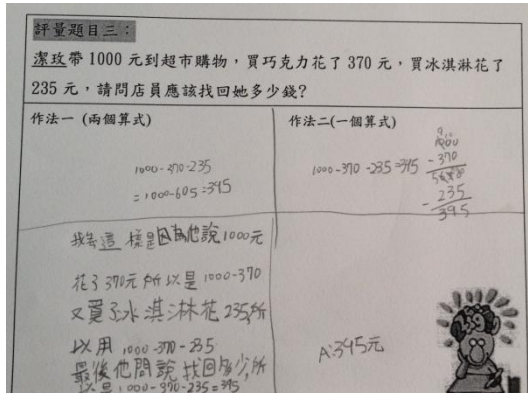 評量題目三：
潔玫帶 1000 元到超市購物，買巧克力花了 370 元，買冰淇淋花了
235 元，請問店員應該找回她多少錢?
作法一 (兩個算式)
1000-370-235
=1000-605=395
我會這樣是因為他說1000元
花了370元所以是1000-370
又買了冰淇淋花235,所
以用1000-370-235
最後他問說找回多少,所
以是1000-370-235=395
作法二(一個算式)
1000-370-235=395
1000
-370
-235
395
A:395元